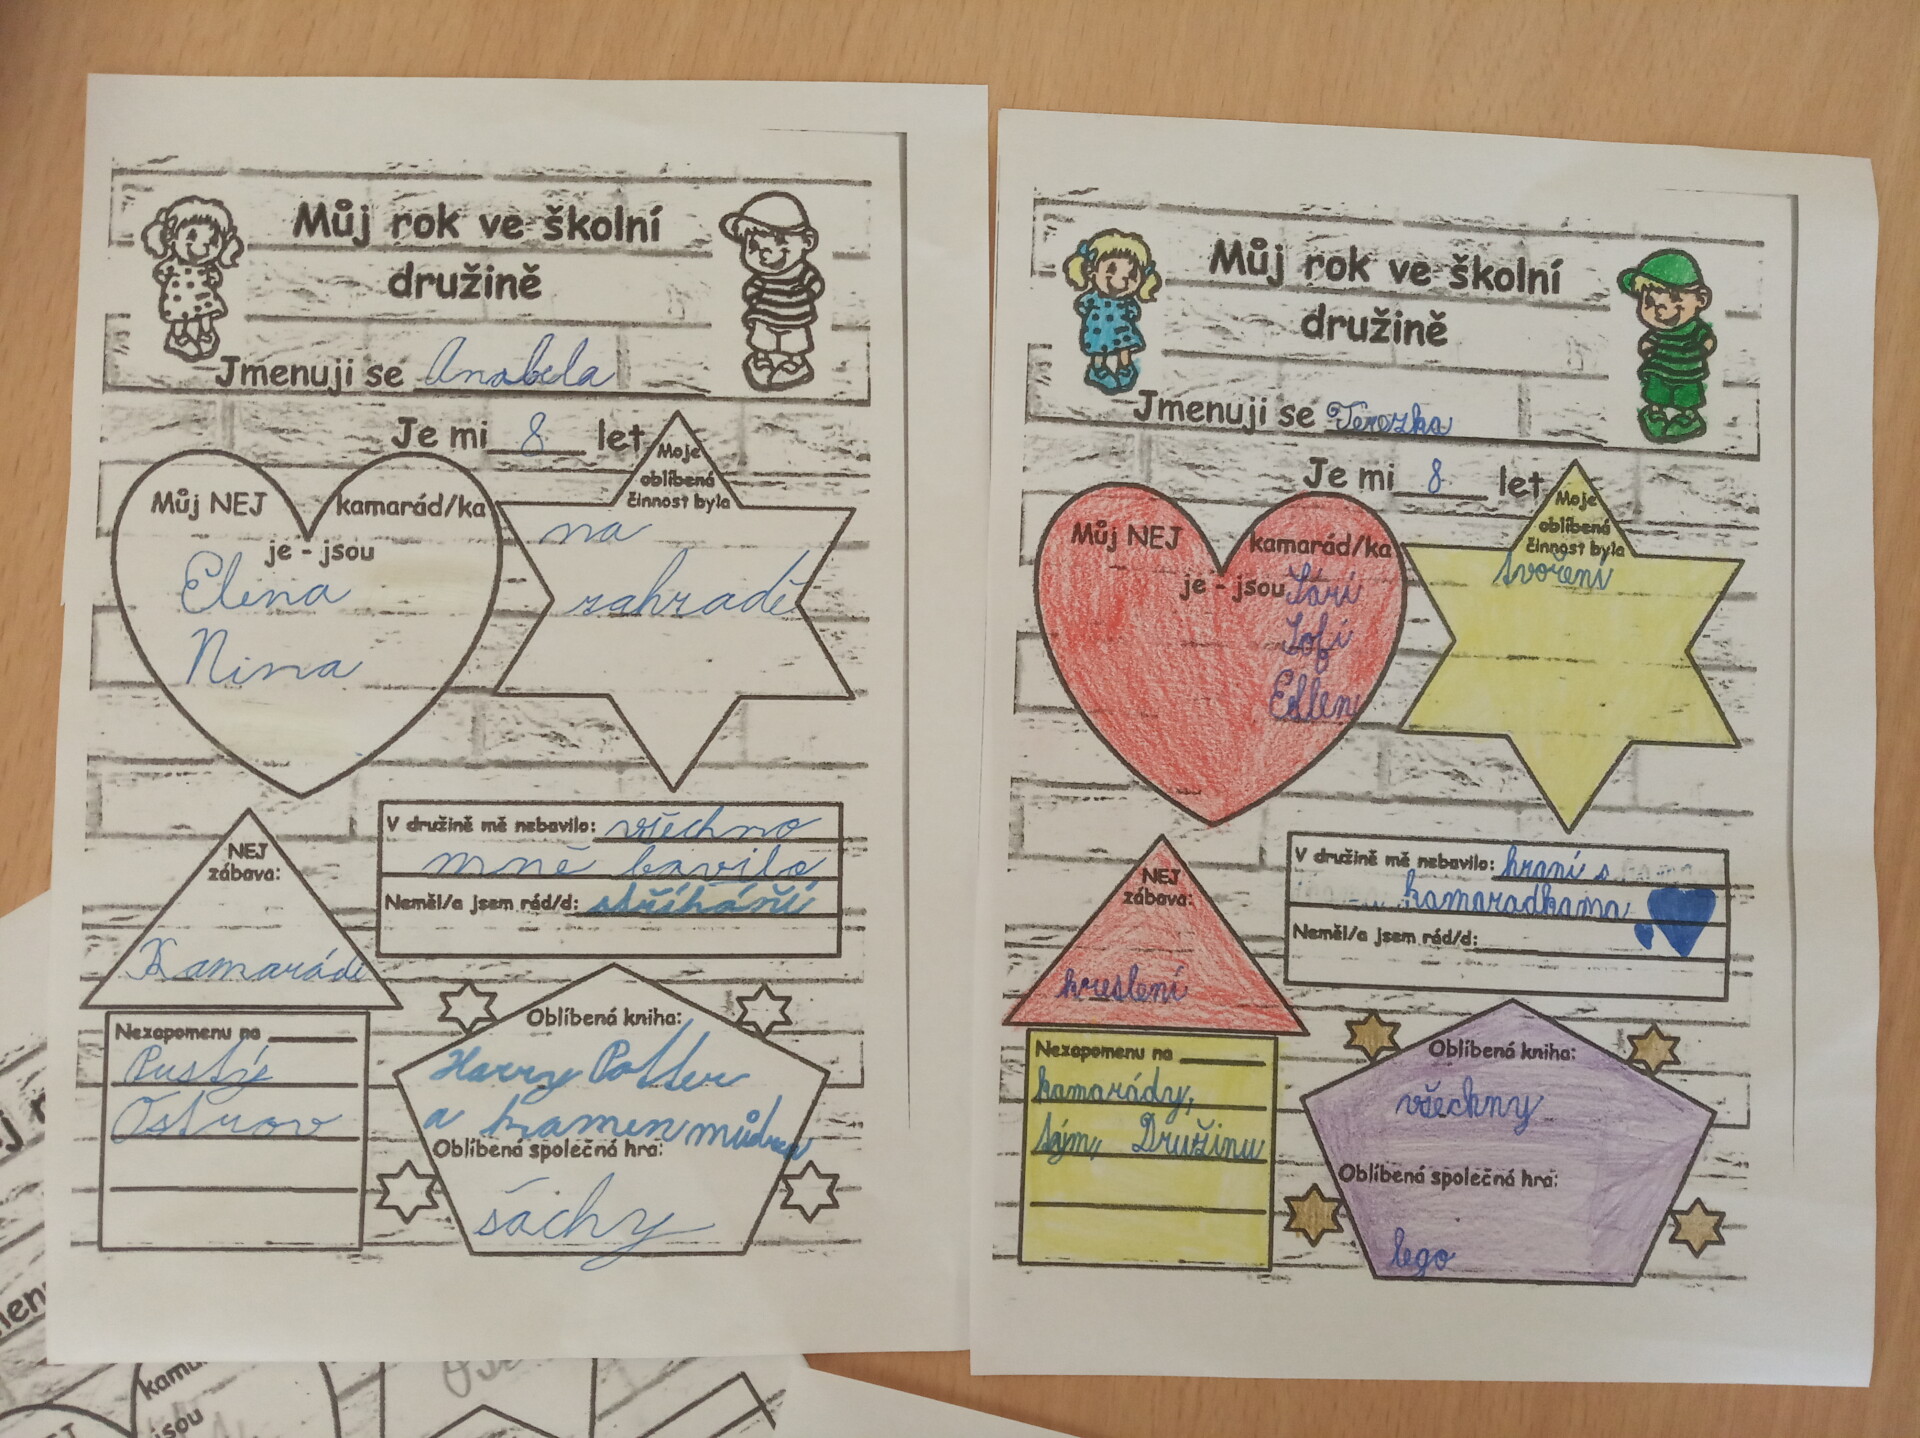 Můj rok ve školní
družině
Jmenuji se Anabela
Je mi 8 let
Můj NEJ kamarád/ka
je - jsou
Elena
Nina
Moje
oblíbená
činnost byla
na
zahradě
NEJ
zábava:
Kamarádi
V družině mě nebavilo: všechno
mně bavilo
Neměl/a jsem rád/d: stříhání
Nezapomenu na
Pustý
Ostrov
Oblíbená kniha:
Harry Potter
a kamen můdrcu
Oblíbená společná hra:
šáchy
Můj rok ve školní
družině
Jmenuji se Terezka
Je mi 8 let
Můj NEJ kamarád/ka
je - jsou Sári
Sofi
Ellen
Moje
oblíbená
činnost byla
tvoření
NEJ
zábava:
kreslení
V družině mě nebavilo: hraní s
kamaradkama
Neměl/a jsem rád/d:
Nezapomenu na
kamarády,
tým, Družinu
Oblíbená kniha:
všechny
Oblíbená společná hra:
lego
kamar
jsou